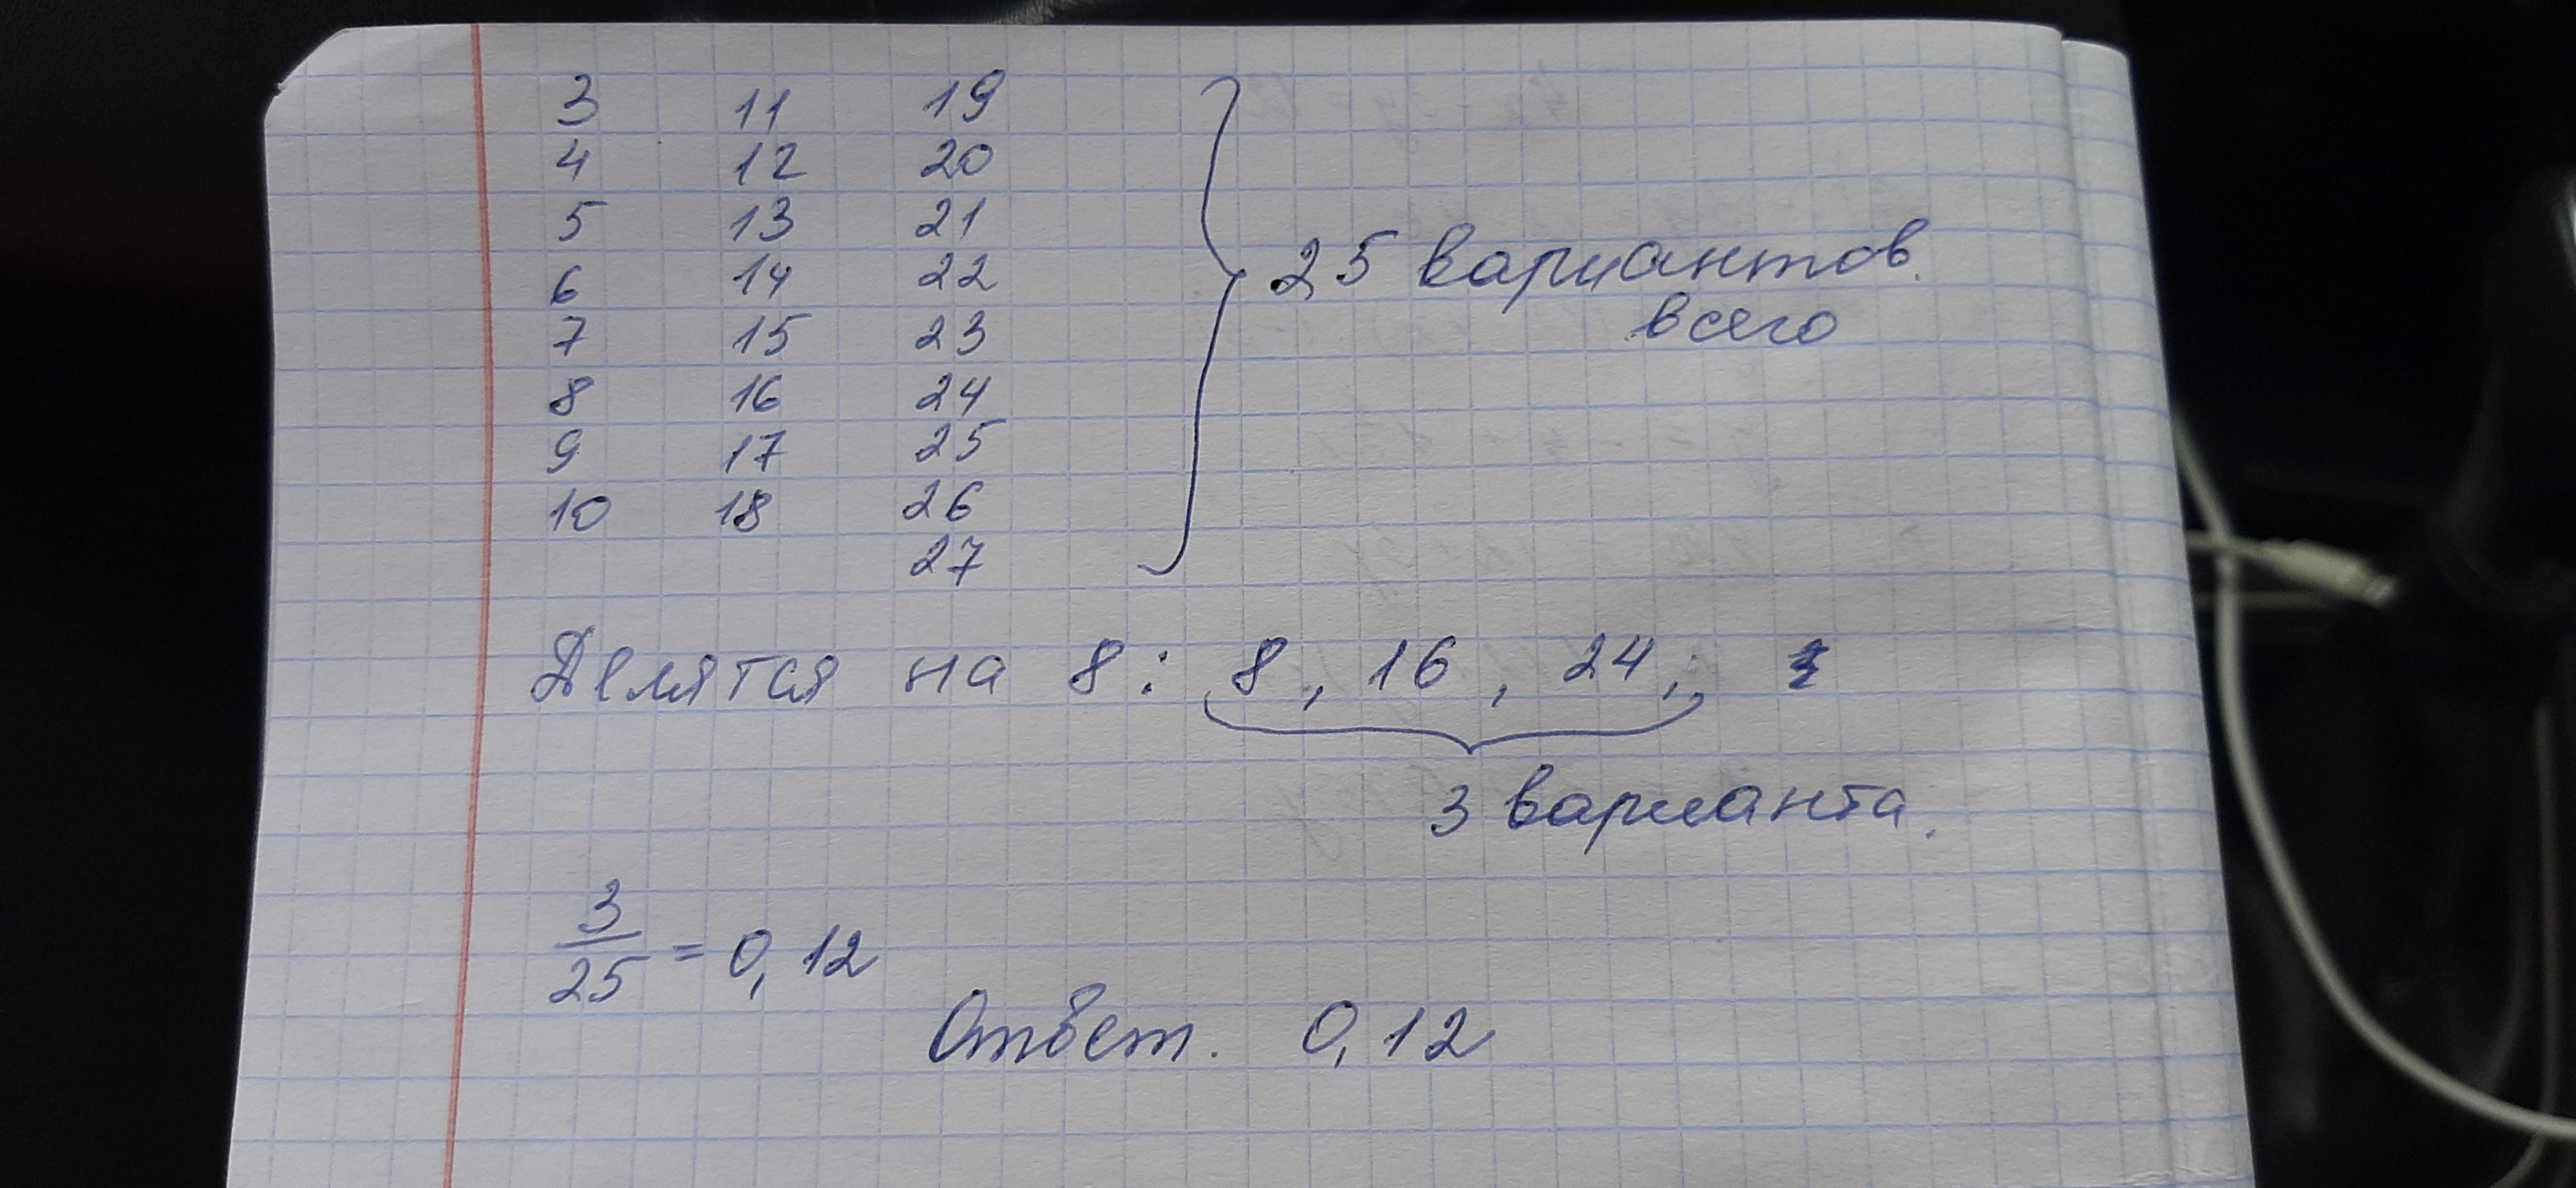 3 11 19
4 12 20
5 13 21
6 14 22
7 15 23
8 16 24
9 17 25
10 18 26
27
25 вариантов.
всего
Делятся на 8: 8, 16, 24;
3 варианта.
3/25 = 0,12
Ответ. 0,12